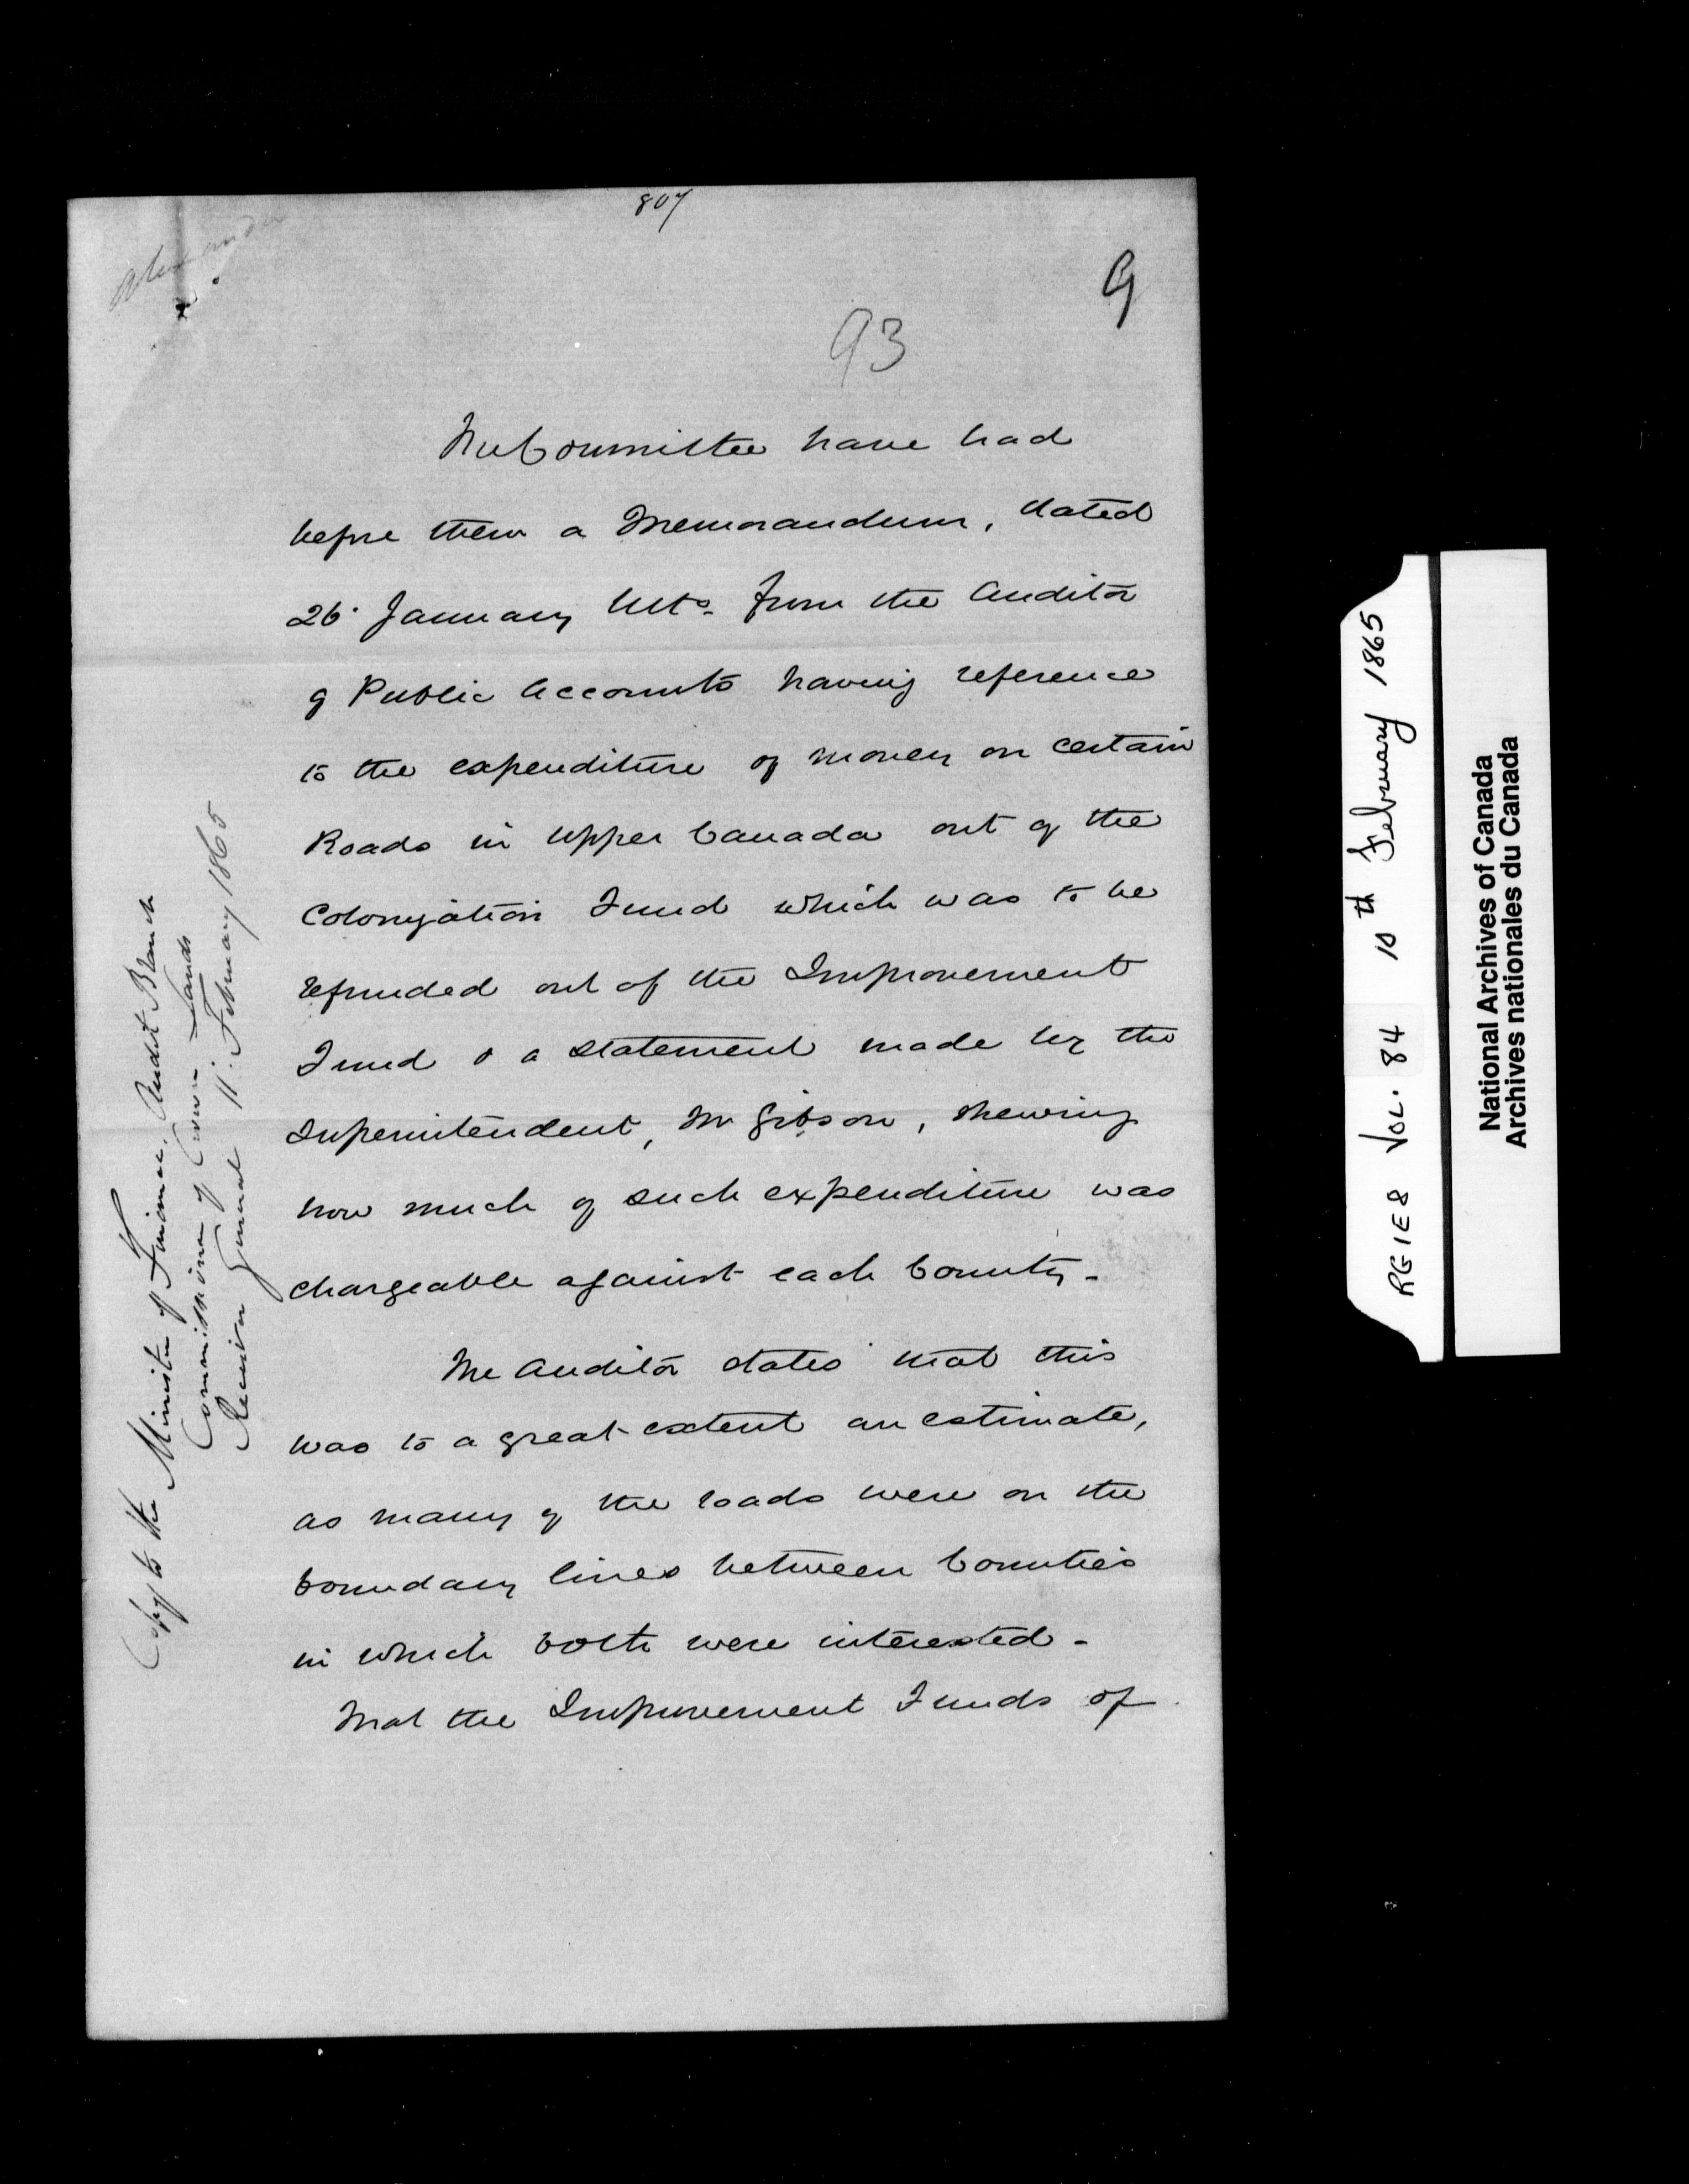 807
G
93
The Committee have had
before them a Memorandum, dated
26. January Ulto. from the Auditor
of Public Accounts having reference
to the expenditure of money on certain
Roads in Upper Canada out of the
Colonization Fund which was to be
refunded out of the Improvement
Fund & a statement made by the
Superintendent, Mr Gibson, shewing
how much of such expenditure was
chargeable against each County-
The Auditor states that this
was to a great extent an estimate,
as many of the roads were on the
boundary lines between Counties
in which both were interested-
That the Improvement Funds of
Copy to the Minister of Finance. Audit Branch
Commissioner of Crown Lands
Receiver General 11. February 1865
RG1E8 VOL. 84 10th February 1865
National Archives of Canada
Archives nationales du Canada